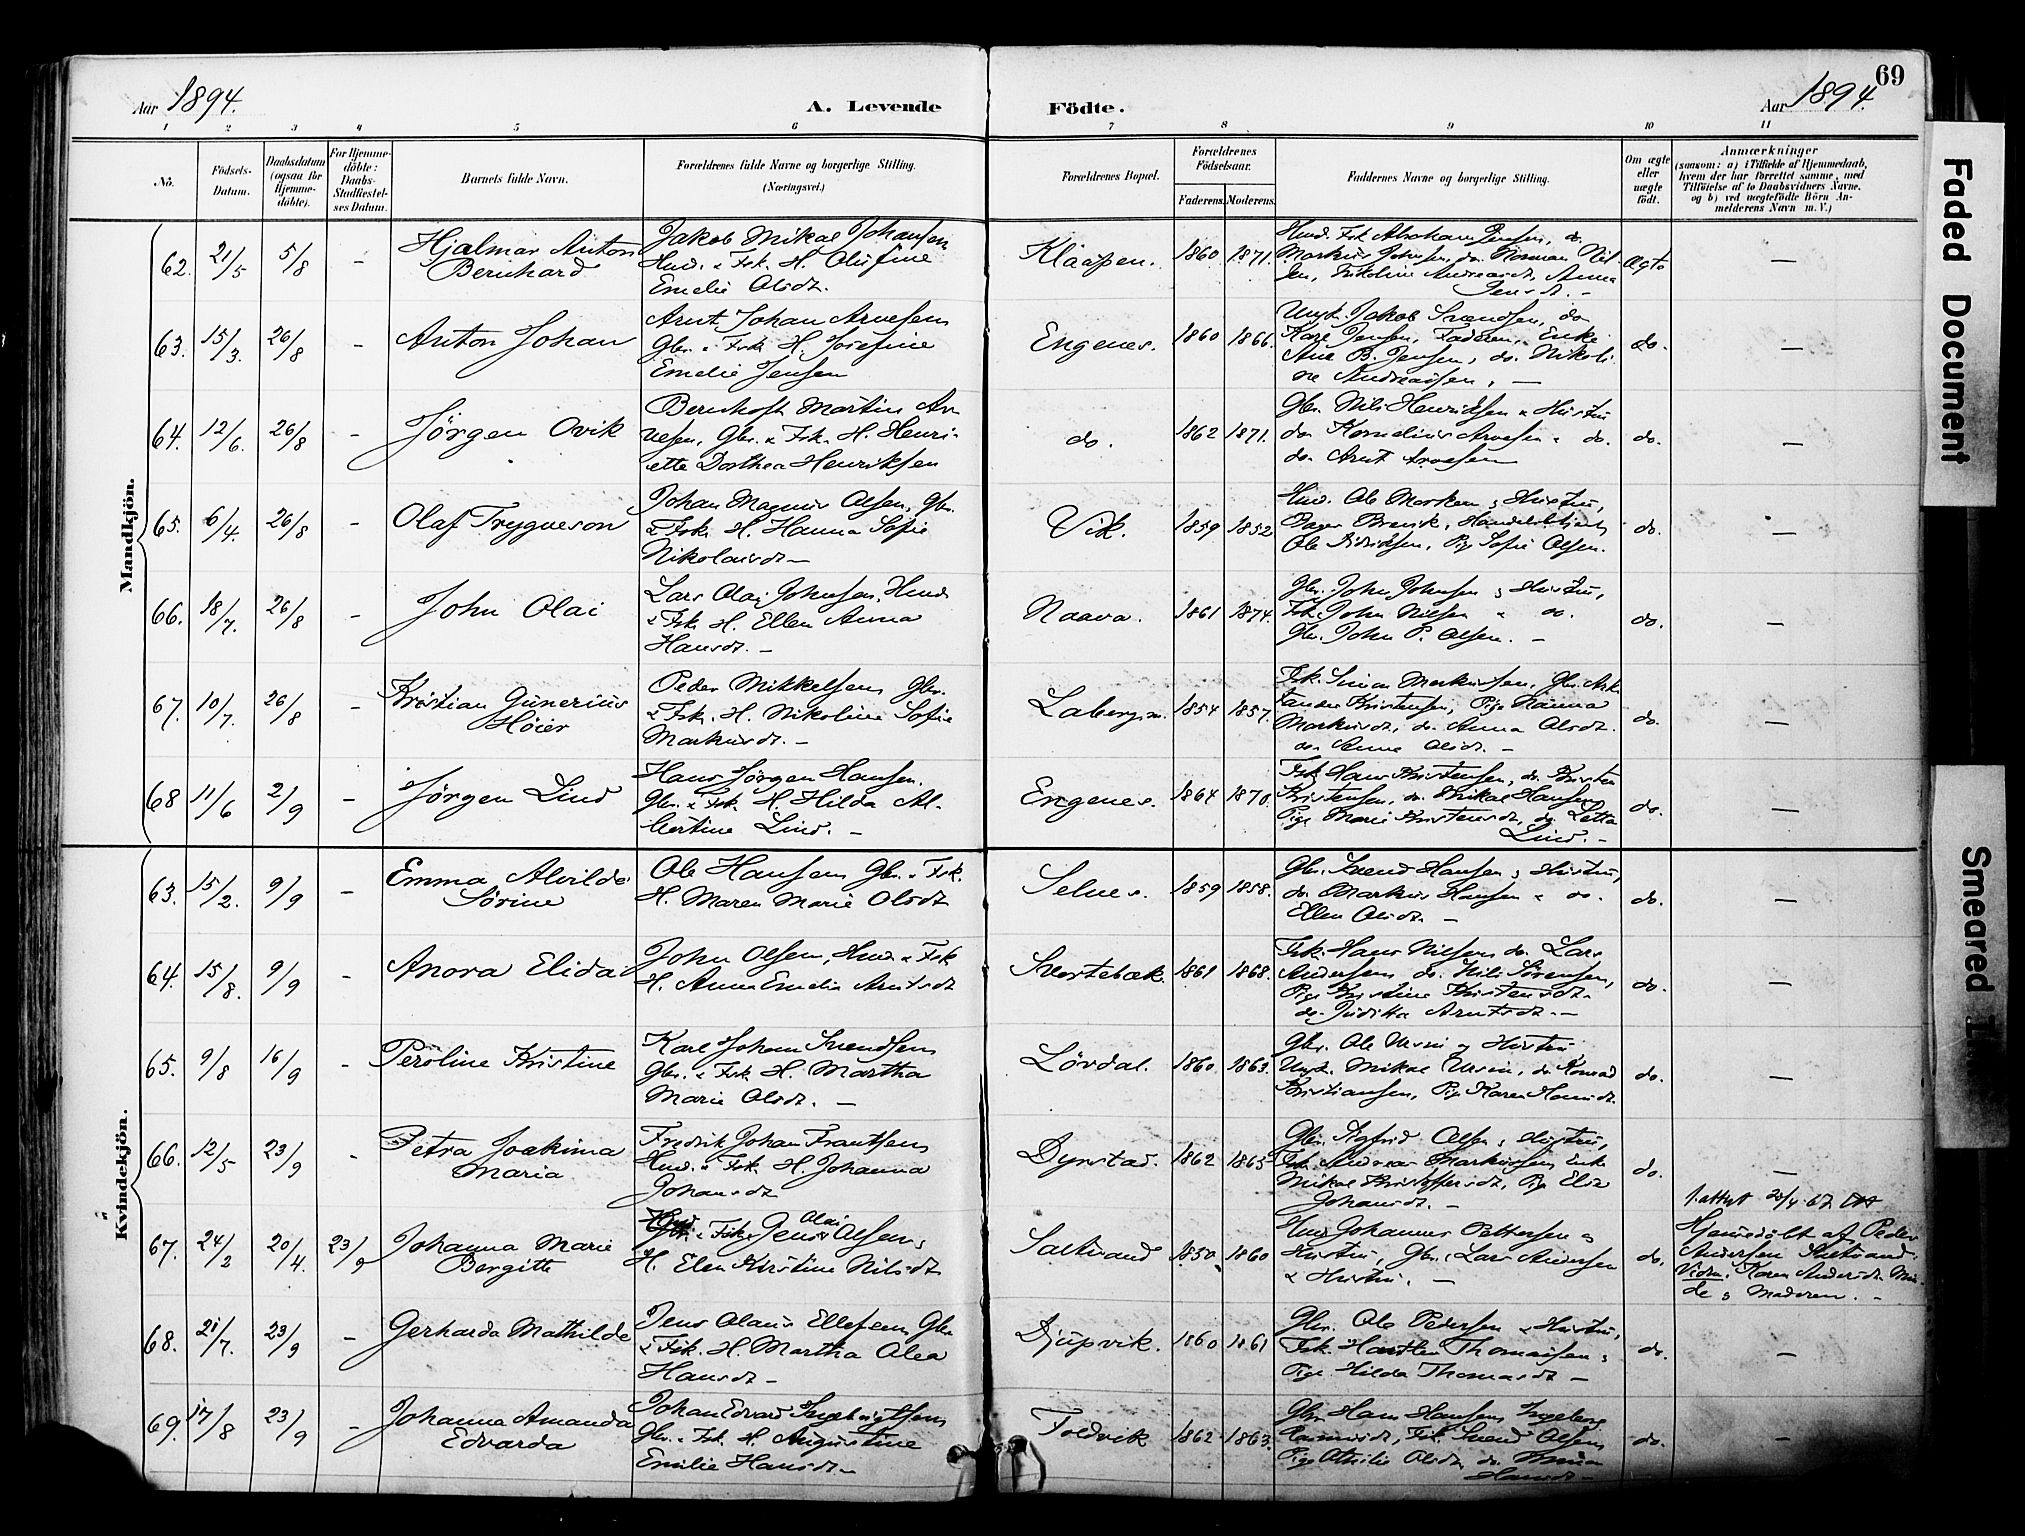 Aar 1894.
A. Levende
Födte.
Aar 1894.
69
1 2 3 4 5 6 7 8 9 10 11
No.
Födsels-
Datum.
Daabsdatum
(ogsaa for
Hjemme-
döbte).
For Hjemme-
döbte:
Daabs-
Stadfæstel-
ses Datum.
Barnets fulde Navn.
Forældrenes fulde Navne og borgerlige Stilling.
(Næringsvei.)
Forældrenes Bopæl.
Forældrenes
Födselsaar.
Faderens. Moderens.
Faddernes Navne og borgerlige Stilling.
Om ægte
eller
uægte
födt.
Anmærkninger
(saasom: a) i Tilfælde af Hjemmedaab,
hvem der har forrettet samme, med
Tilföielse af to Daabsvidners Navne,
og b) ved uægtefödte Börn An-
melderens Navn m. V.)
Mandkjön.
62. 21/5 5/8 -
Hjalmar Anton
Bernhard
Jakob Mikal Johansen
Hmd. & Fsk. H. Olufine
Emelie Olsdt.
Klaapen. 1860 1871.
Hmd. Fsk. Abraham Jensen, do.
Markus Johnsen, do. Norman Nil-
sen, Nikoline Andreasdt, Anna
Jensdt. -
Ægte
—
63. 15/3. 26/8 -
Anton Johan
Arnt Johan Arvesen
Gbr. & Fsk. H. Josefine
Emelie Jensen
Engenes. 1860 1866.
Ungk. Jakob Svendsen, do
Karl Jensen, Faderen, Enke
Ane B. Jensen, do. Nikoli-
ne Andreassen. —
do.
—
64. 12/6. 26/8 -
Jörgen Ovik
Bernhoft Martin Ar-
vesen, Gbr. & Fsk. H. Henri-
ette Dorthea Henriksen
do. 1862 1871.
Gbr. Nils Henriksen & Hustru
do Kornelius Arvesen & do.
do. Arnt Arvesen
do.
—
65. 6/4. 26/8 -
Olaf Trygveson
Johan Magnus Olsen, Gbr.
& Fsk. H. Hanna Sofie
Nikolaisdt —
Vik. 1859 1852
Hmd. Ole & Hustru,
Ole Didriksen, Pige Sofie Olsen.
do.
—
66. 18/7. 26/8 -
John Olai
Lars Olai Johnsen, Hmd.
& Fsk. H. Ellen Anna
Hansdt. —
Naava. 1861 1874.
Gbr. John Johnsen & Hustru,
Fsk. John Nilsen & do.
Gbr. John P. Olsen. —
do.
—
67. 10/7. 26/8 -
Kristian Gunerius
Höier
Peder Mikkelsen Gbr.
& Fsk. H. Nikoline Sofie
Markusdt. —
Labergm. 1854 1857.
Fsk. Simon Markussen, Gbr.
Kristensen, Pige Hanna
Markusdt, do. Anna Olsdt.
do. Anne Olsdt. —
do.
—
68 11/6 2/9 -
Jörgen Lind
Hans Jörgen Hansen.
Gbr. & Fsk. H. Hilda Al-
bertine Lind. —
Engenes. 1864 1870.
Fsk. Hans Kristensen, do. Kristen
Kristensen, do. Mikal Hansen
Pige Marie Kristensdt, do. Letta
Lind. —
do.
—
Kvindekjön.
63. 15/2. 9/9 -
Emma Alvilde
Sörine
Ole Hansen Gbr. & Fsk.
H. Maren Marie Olsdt
Selnes. 1859 1858.
Gbr. Svend Hansen & Hustru,
do. Markus Hansen & do.
Ellen Olsdt. —
do.
—
64. 15/8. 9/9 -
Anora Elida
John Olsen, Hmd. & Fsk
H. Anna Emelie Arntsdt
Svartebæk. 1861 1868.
Fsk. Hans Nilsen do. Lars
Andersen do. Nils Sörensen,
Pige Kristine Kristensdt.
do. Judikka Arntsdt. —
do.
—
65. 9/8 16/9 -
Peroline Kristine
Karl Johan Svendsen
Gbr. & Fsk. H. Martha
Marie Olsdt. —
Lövdal. 1860. 1863.
Gbr. Ole Ursin & Hustru
Ungk. Mikal Ursin, do Konrad
Kristiansen, Pige Karen Hansdt.
do.
—
66. 12/5 23/9 -
Petra Joakima
Maria
Fredrik Johan Frantsen
Hmd. & Fsk. H. Johanna
Johansdt
Dyrstad. 1862 1865
Gbr. Sigfrid Olsen & Hustru,
Fsk. Andreas Markussen, Enke
Mikal Kristoffersdt, Pige Elis
Johansdt. —
do.
—
67. 24/2 20/4. 23/9
Johanna Marie
Bergitte
Hmd. & Fsk. Jens Olai Olsen &
H. Elen Kirstine Nilsdt
Saltvand 1850 1860
Hmd. Johannes Pettersen &
Hustru, Gbr. Lars Andersen
& Hustru. —
do.
1. attest 20/4 67
Hjemmedöbt af Peder
Andersen Saltvand.
Vidn. Karen Andersdt
& Moderen. -
68. 21/7. 23/9 -
Gerharda Mathilde
Jens Olaus Ellefsen Gbr
& Fsk. H. Martha Olea
Hansdt —
Djupvik. 1860 1861
Gbr. Ole Pedersen & Hustru,
Fsk. Thomassen &
Pige Hilda Thomasdt —
do.
—
69. 17/8 23/9 -
Johanna Amanda
Edvarda
Johan Edvard Ingebrigtsen
Gbr. & Fsk. H. Augustine
Emilie Hansdt —
Foldvik 1862 1863.
Gbr. Hans Hansen Ingeborg
Rasmusdt, Fsk. Svend Olsen
Pige Othilie Olsdt, do.
Hansdt —
do.
—
Faded Document
Smeared